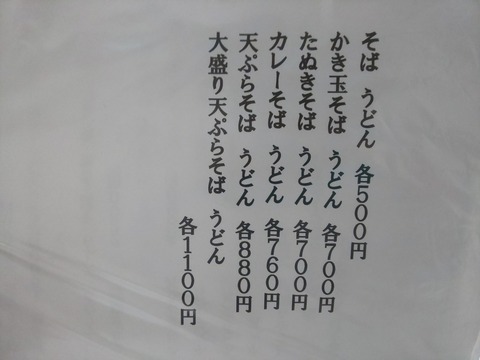 そば うどん 各500円
かき玉そば うどん 各700円
たぬきそば うどん 各700円
カレーそば うどん 各760円
天ぷらそば うどん 各880円
大盛り天ぷらそば うどん
各1100円